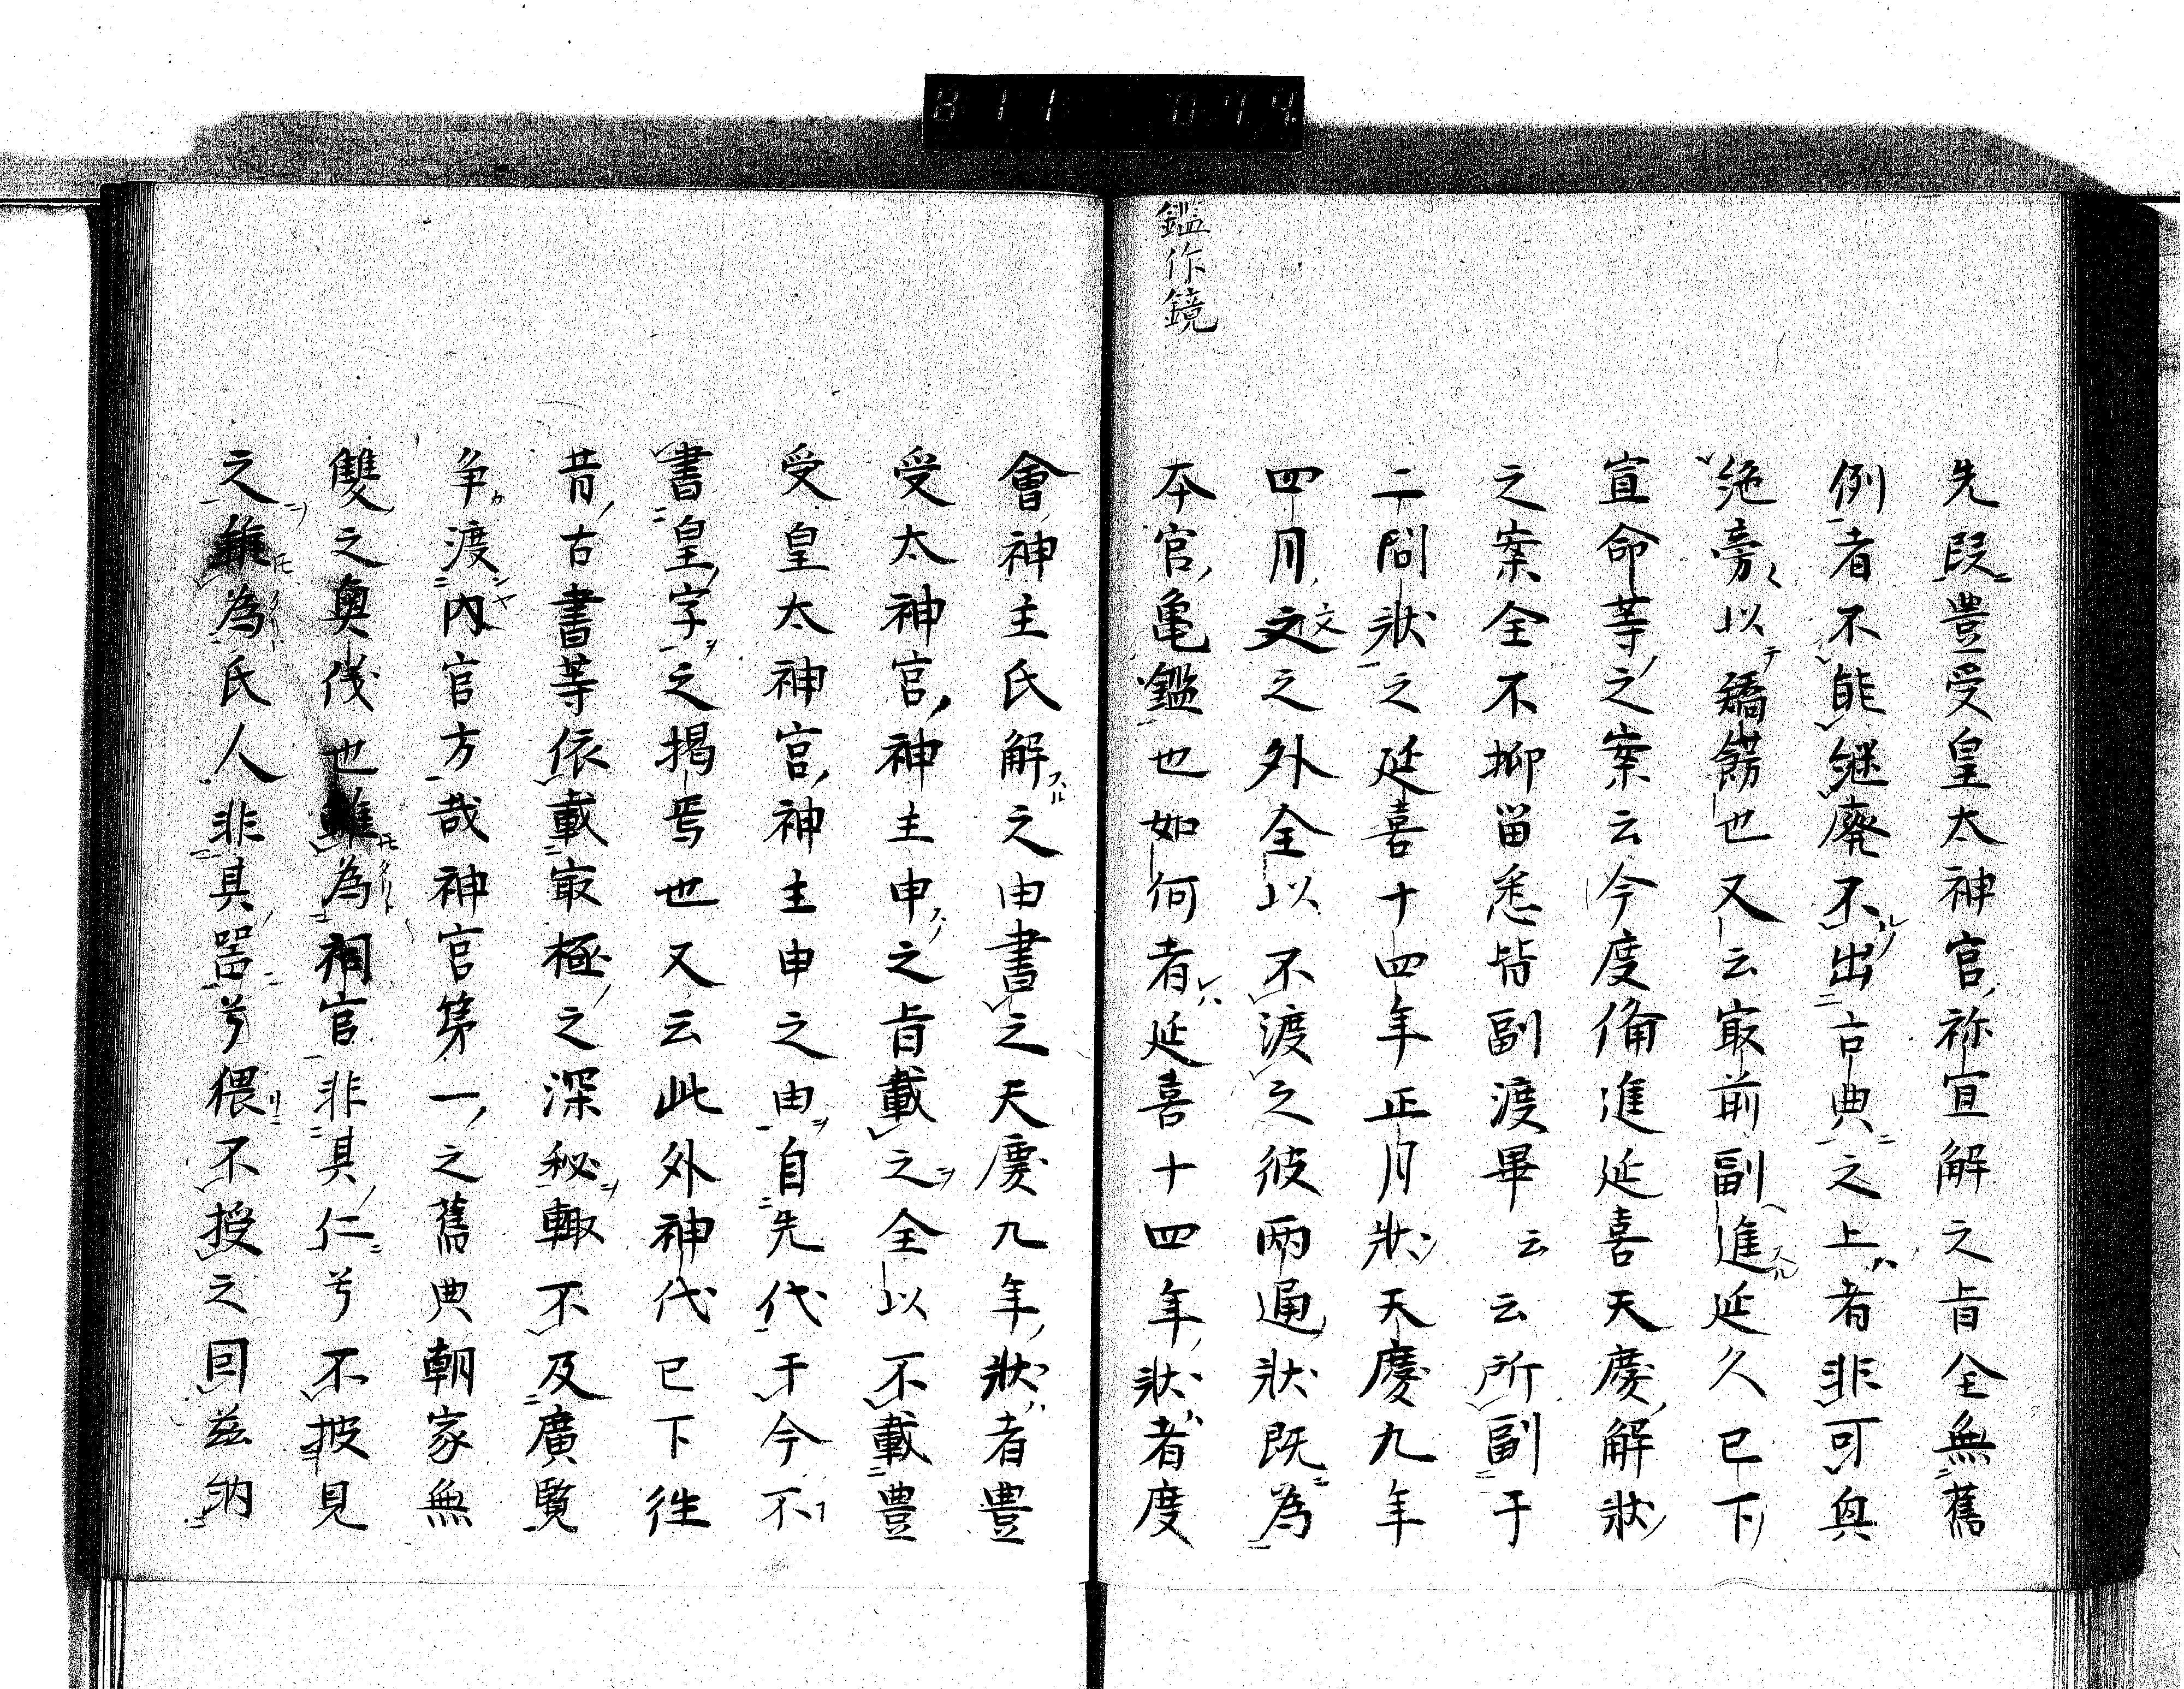 鑑作鏡
先段豊受皇太神宮祢宜解之旨全無舊
例者不能継廃不出古典之上者非可與
絶旁以矯餝也又云冣前副進延久已下
宣命等之案云今度備進延喜天慶解狀
之案全不抑留悉皆副渡畢云云所副于
二問狀之延喜十四年正月狀天慶九年
四月文之外全以不渡之彼兩通狀既為
本官亀鑑也如何者延喜十四年狀者度
會神主氏解之由書之天慶九年狀者豊
受太神宮神主申之旨載之全以不載豊
受皇太神宮神主申之由自先代于今不
書皇字之揭焉也又云此外神代已下徃
昔古書等依載冣極之深秘輙不及廣覧
争渡內官方哉神官第一之舊典朝家無
雙之奥伐也雖為祠官非其仁兮不披見
之雖為氏人非其器兮猥不授之因茲納